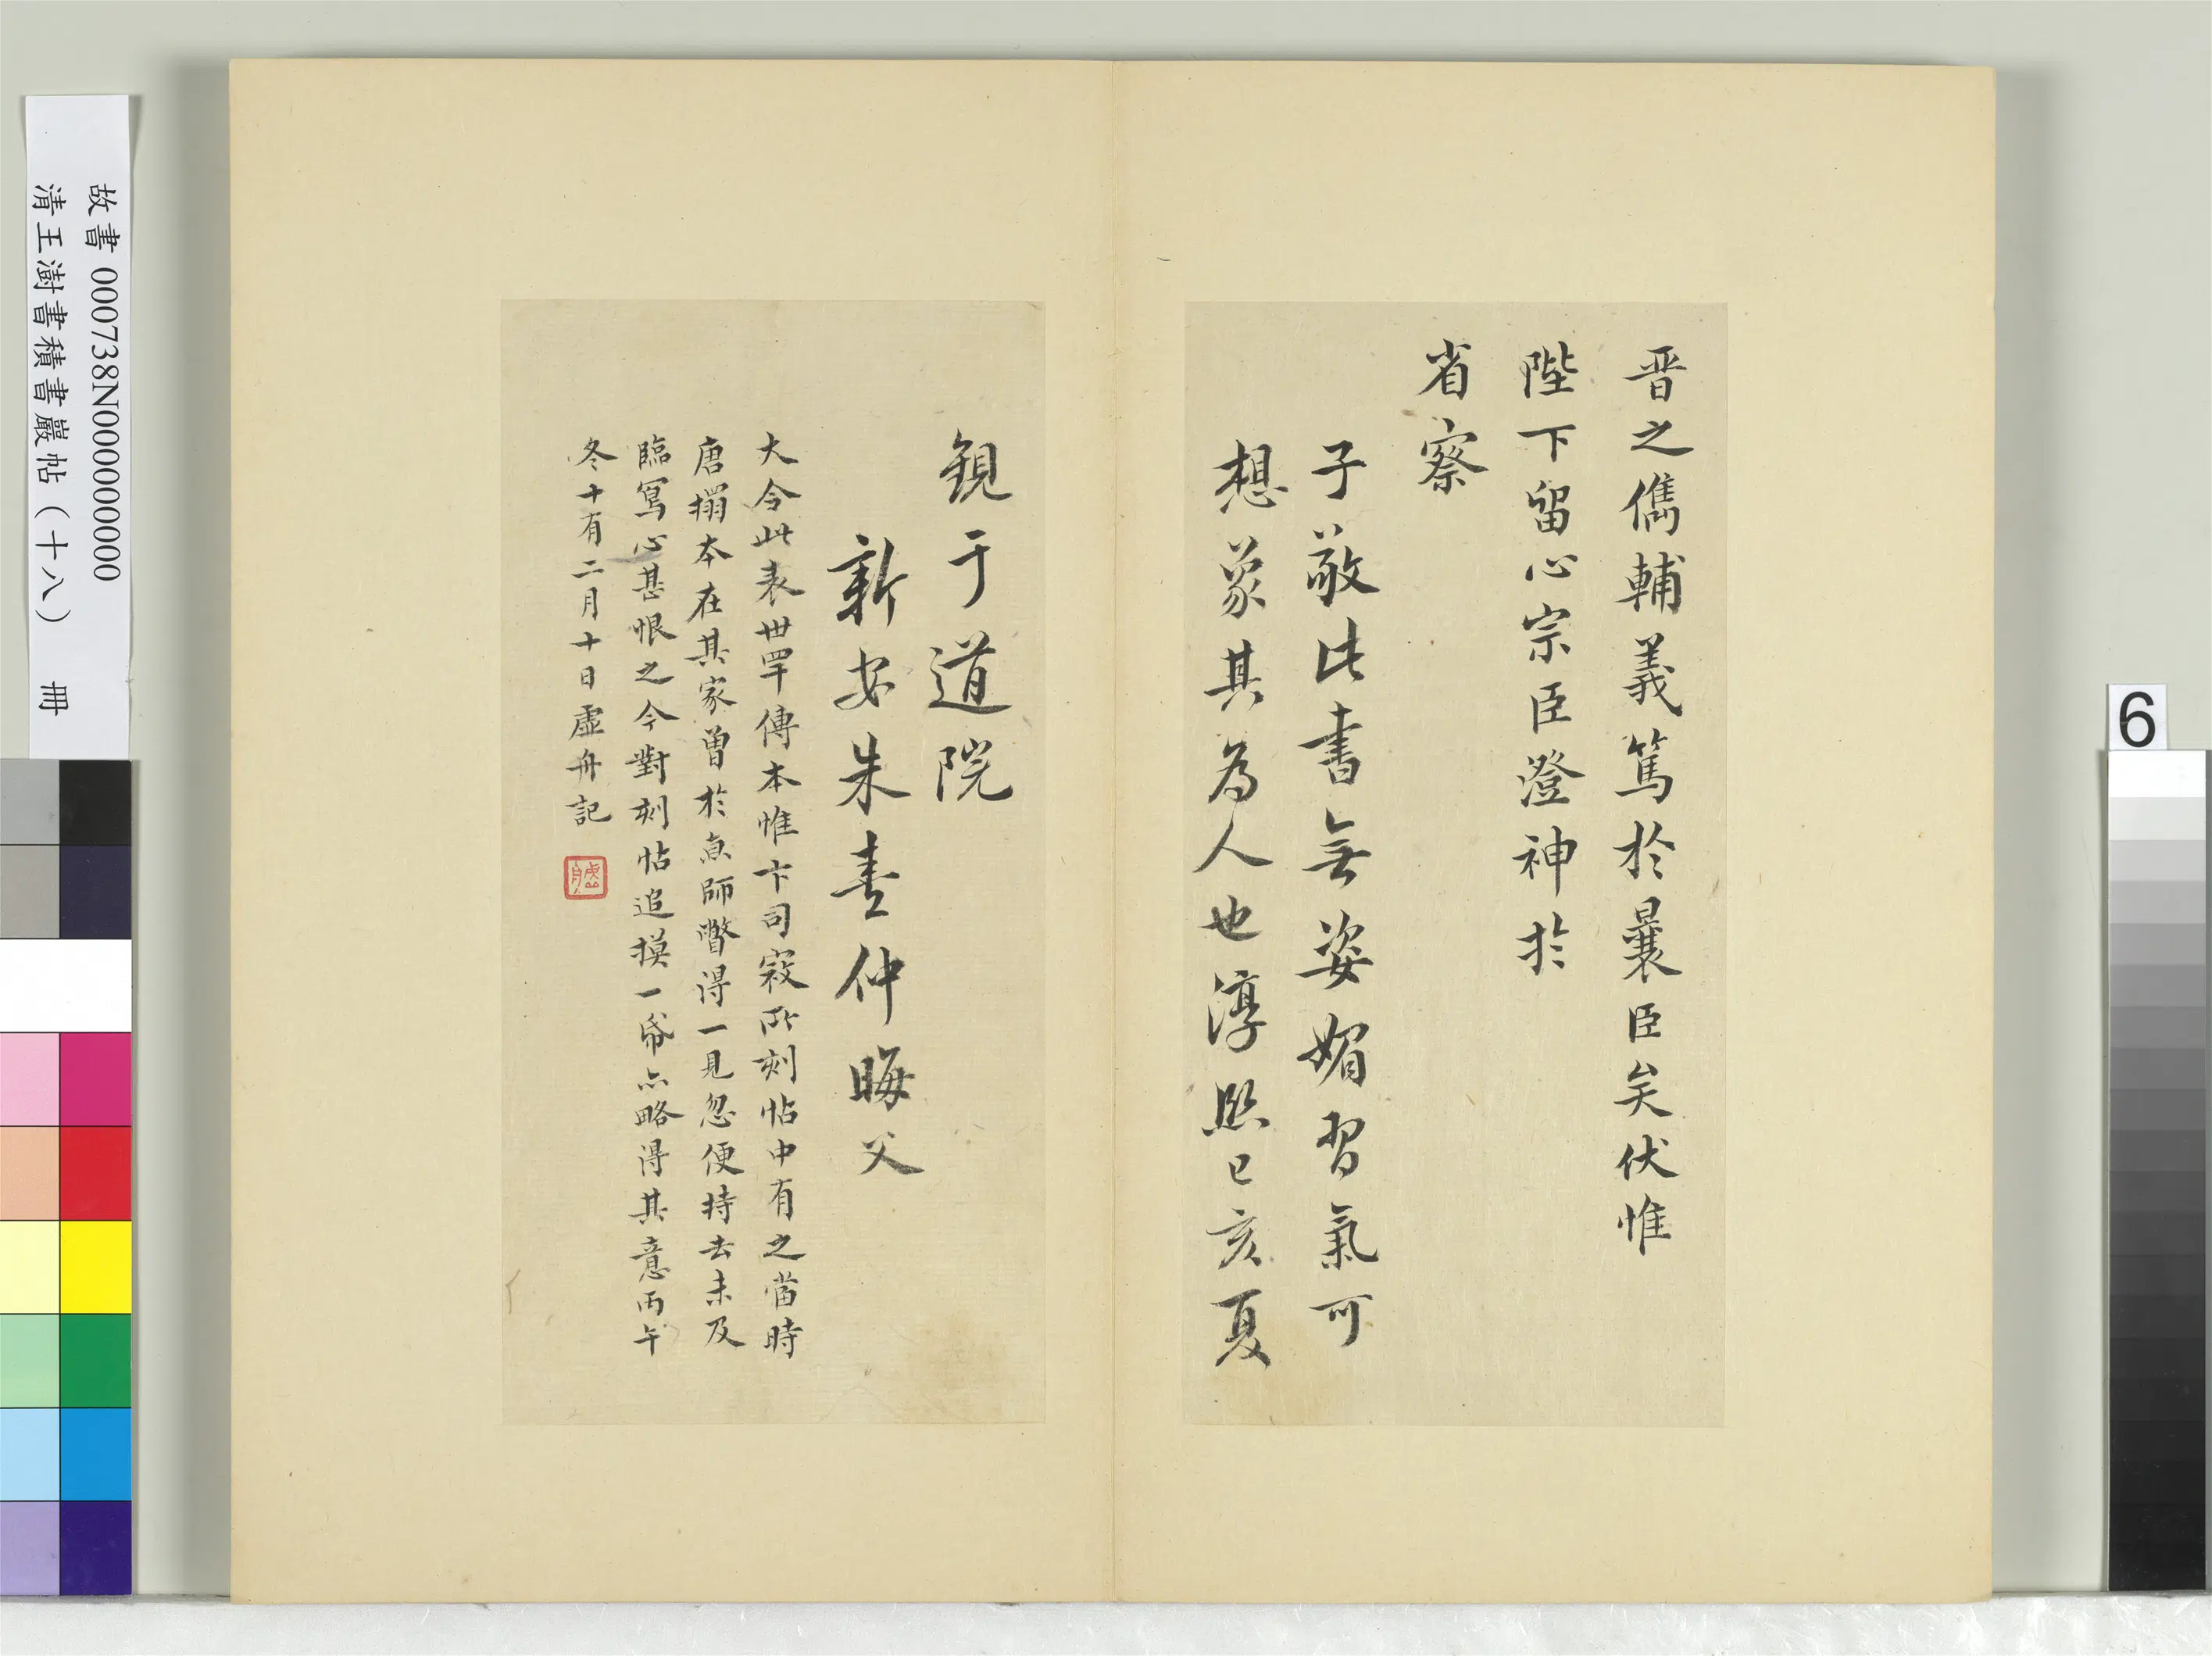 晋之儁輔義篤於曩臣矣伏惟
陛下留心宗臣澄神於
省察
子敬此書無姿媚習氣可
想象其為人也淳熙己亥夏
觀于道院
新安朱熹仲晦父
大令此表世罕傳本惟卞司寇所刻帖中有之當時
唐搨本在其家曾於京師瞥得一見忽便持去未及
臨寫心甚恨之今對刻帖追摸一帋亦略得其意丙午
冬十有二月十日虛舟記
故書 000738N000000000
清王澍書積書巖帖（十八） 冊
6